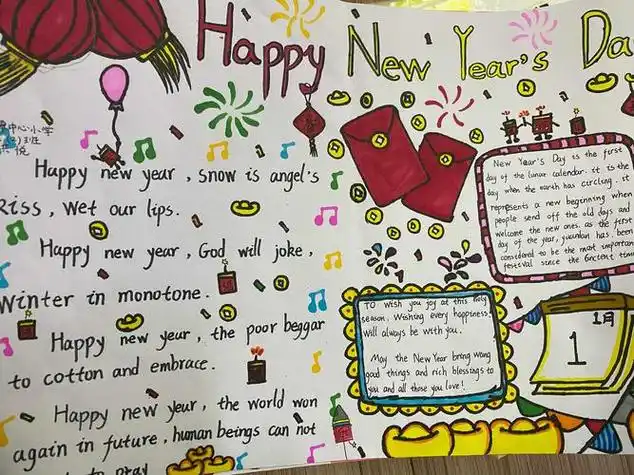 Happy New Year's Da
中心小学
班
悦
Happy new year, snow is angel's
kiss, wet our lips.
Happy new year, God will joke,
winter in monotone.
Happy new year, the poor beggar
to cotton and embrace.
Happy new year, the world won
again in future, human beings can not
to pray
New Year's Day is the first
day of the lunar calendar. it is the
day when the earth has circling. it
represents a new beginning when
people send off the old days and
welcome the new ones. as the first
day of the year, yuandan has been
considered to be the most important
festival since the ancient time
TO wish you joy at this holy
season. Wishing every happiness
will always be with you.
May the New Year bring wong
good things and rich blessings to
you and all those you love!
1月
1